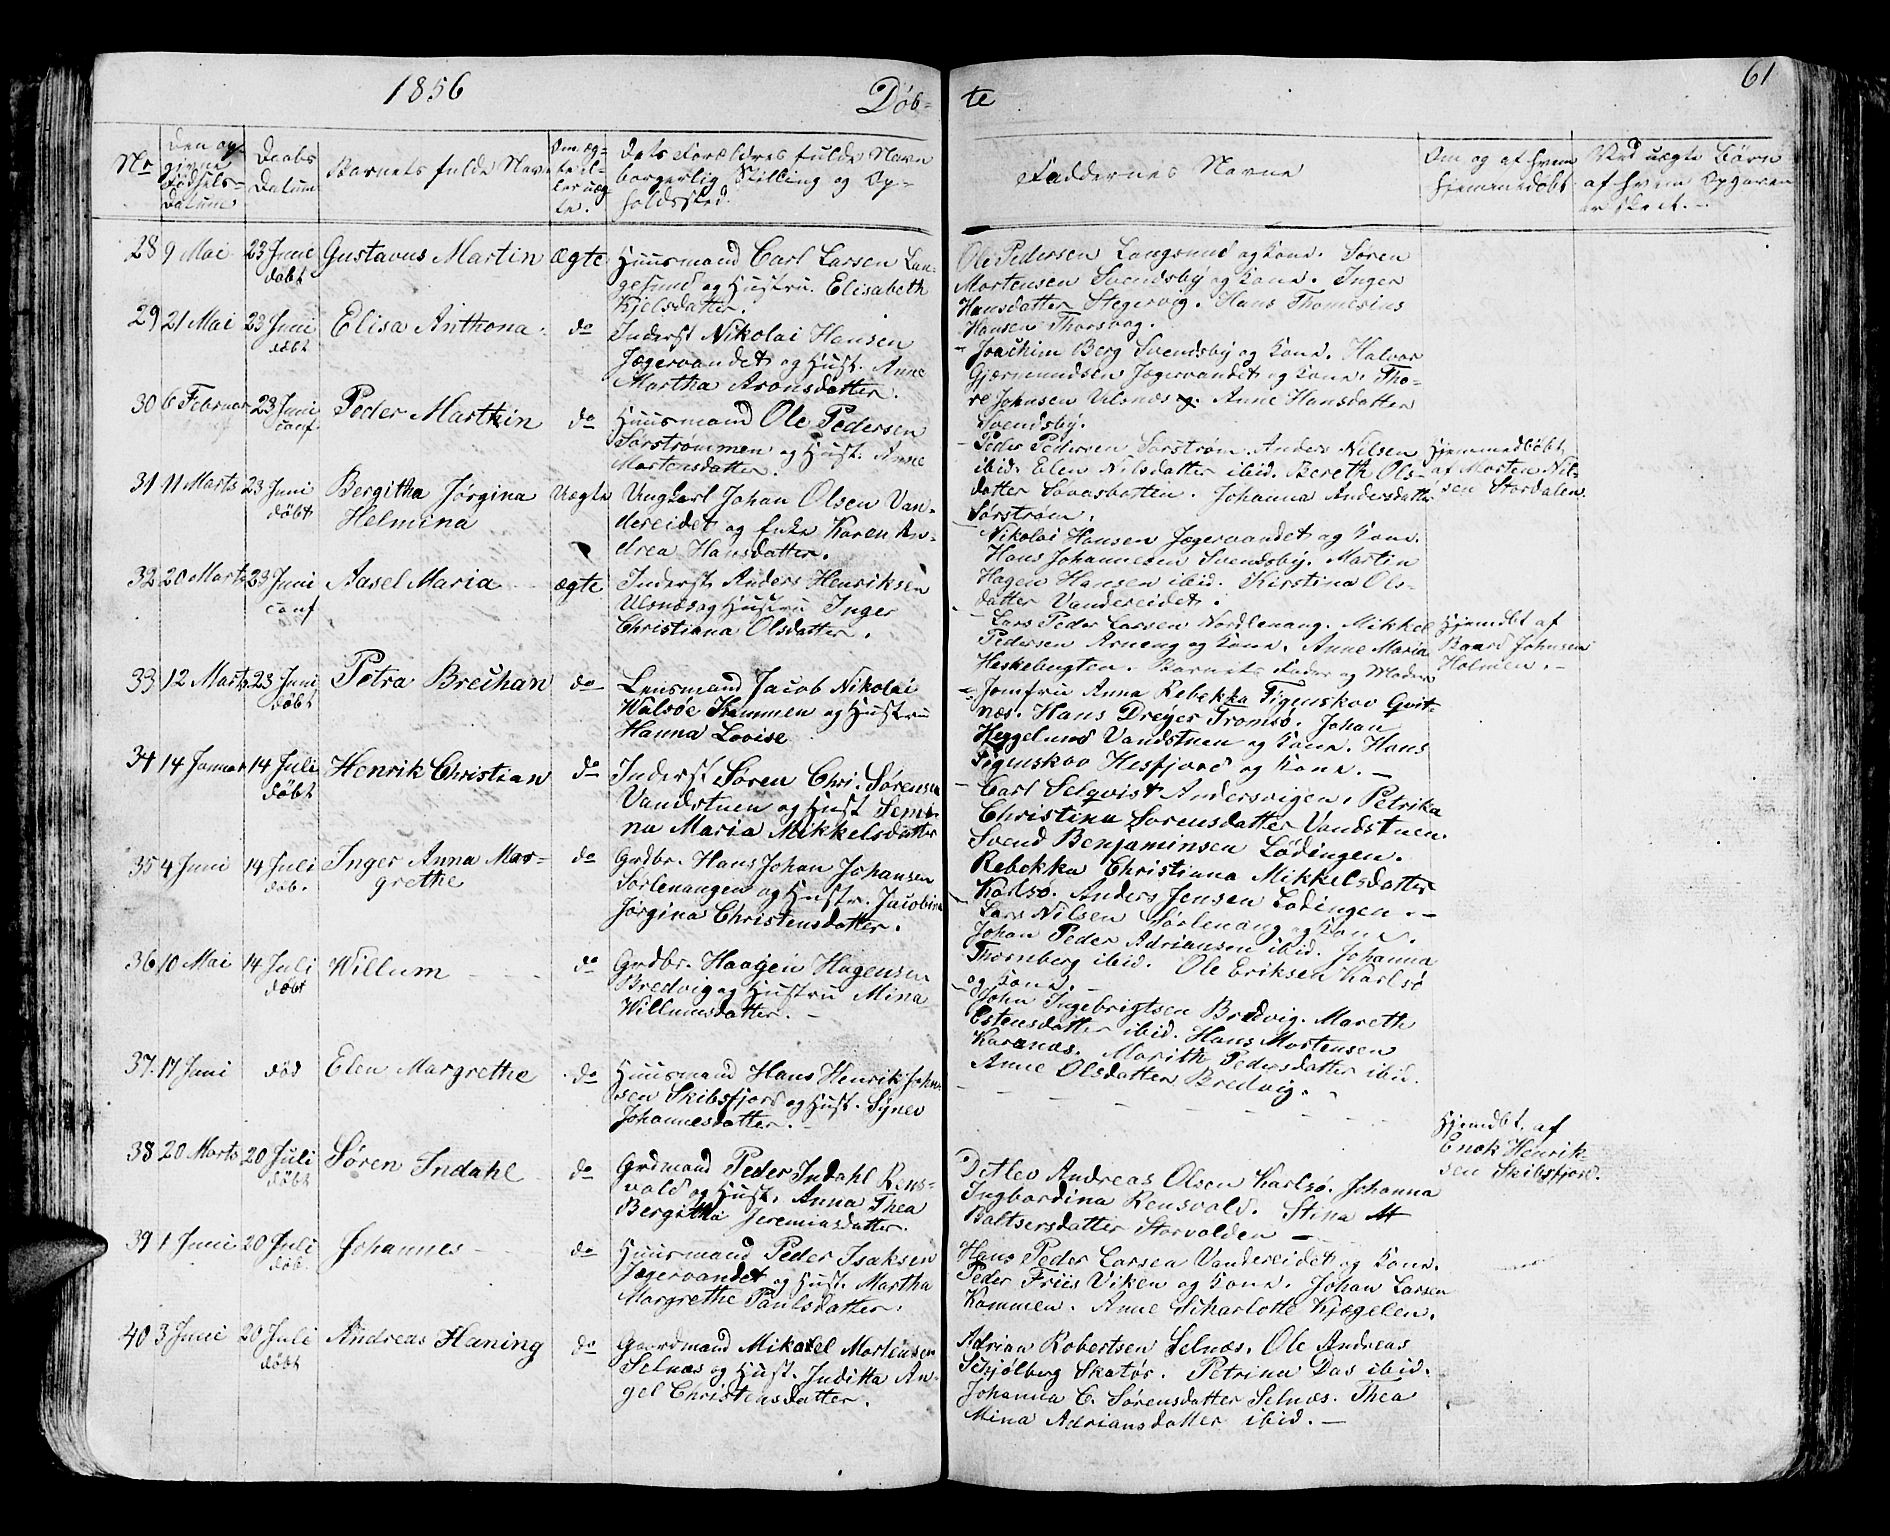 1856 Døb= te 61
No
Den op=
givne
Fødsels=
Datum
Daabs
Datum
Barnets fulde Navn
Om æg=
te el=
ler uæg
te.
Dets Forældres fulde Navn
borgerlig Stilling og Op=
holdssted.
Faddernes Navne
Om og af hvem
hjemmedøbt
Ved uægte Børn
af hvem Opgaven
er skeet.
28 9 Mai 23 Juni Gustavus Martin Ægte Huusmand Carl Larsen Lan=
døbt gesund og Hustru Elisabeth
Kjelsdatter.
Ole Pedersen Langsund og Kone. Søren
Mortensen Svendsby og Kone. Inger
Hansdatter Stegervig. Hans Thomesius
Hansen Thorsvag.
29 21 Mai 23 Juni Elisa Anthona. do Inderst Nikolai Hansen
døbt Jægervandet og Hust. Anne
Martha Aronsdatter.
- Joachim Berg Svendsby og Kone. Halvor
Gjærmundsen Jægervandet og Kone. Tho=
re Johnsen Ulsnæs. Anne Hansdatter
Svendsby.
30 6 Februar 23 Juni Peder Marthin do Huusmand Ole Pedersen
conf Sørstrømmen og Hust. Anne
Mortensdatter.
- Peder Pedersen Sørstrøm. Anders Nilsen
ibid. Elen Nilsdatter ibid. Bereth Ols=
datter Sovasbotten. Johanna Andersdatter
Sørstrøm.
Hjemmedøbt
af Morten Nil=
sen Stordalen
31 11 Marts 23 Juni Bergitha Jørgina Uægte Ungkarl Johan Olsen Van=
døbt Helmina dereidet og Enke Karen An=
drea Hansdatter.
- Nikolai Hansen Jægervandet og Kone.
Hans Johannesen Svendsby. Martin
Hagen Hansen ibid. Kirstina Ols=
datter Vandereidet.
32 20 Marts 23 Juni Aasel Maria ægte Inderst Anders Henriksen
conf Ulsnæs og Hustru Inger
Christiana Olsdatter.
- Lars Peder Larsen Nordlenang. Mikkel
Pedersen Arneng og Kone. Anne Maria
Heskebugten. Barnets Fader og Moder
Hjemdbt af
Baard Johnsen
Holmen.-
33 12 Marts 23 Juni Petra Brechan do Lensmand Jacob Nikolai
døbt Walsøe Kammen og Hustru
Hanna Lovise
= Jomfru Anna Rebekka Figenskov Qvit=
næs. Hans Dreyer Tromsø. Johan
Heggelund Vandstuen og Kone. Hans
Figenskov Hesfjord og Kone. -
34 14 Januar 14 Juli Henrik Christian do Inderst Søren Chri. Sørensen
døbt Vandstuen og Hust Semi=
na Maria Mikkelsdatter
- Carl Selqvist Andersvigen. Petrika
Christina Sørensdatter Vandstuen.
Svend Benjaminsen Lødingen.
Rebekka Christiana Mikkelsdatter
Karlsø. Anders Jensen Lødingen. -
35 4 Juni 14 Juli Inger Anna Mar= do Grdbr. Hans Johan Johansen
døb. grethe Sørlenangen og Hustr. Jacobine
Jørgina Christensdatter.
- Lars Nilsen Sørlenang og Kone.
Johan Peder Adriansen ibid. Johanna
Thomberg ibid. Ole Eriksen Karlsø
og Kone. -
36 10 Mai 14 Juli Willum do Grdbr. Haagen Hagensen
døbt Bredvig og Hustru Mina
Willumsdatter. -
- John Ingebrigtsen Bredvig. Mareth
Estensdatter ibid. Hans Mortensen
Karanæs. Marith Pedersdatter ibid.
Anne Olsdatter Bredvig.
37 17 Juni død Elen Margrethe do Huusmand Hans Henrik Joha=
sen Skibsfjord og Hust. Synev
Johannesdatter. -
Hjemdbt. af
Enok Henrik
sen Skibsfjord.
38 20 Marts 20 Juli Søren Indahl do Grdmand Peder Indahl Rens=
døbt vold og Hust. Anna Thea
Bergitha Jeremiasdatter.
Detlev Andreas Olsen Karlsø. Johanna
Ingbordina Rensvold. Stina M
Baltsersdatter Storvolden -
39 1 Juni 20 Juli Johannes do Huusmand Peder Isaksen
døb. Jægervandet og Hust. Martha
Margrethe Paulsdatter.
Hans Peder Larsen Vandereidet og Kone.
Peder Friis Viken og Kone. Johan Larsen
Kammen. Anne Scharlotte Kjægelen.
40 3 Juni 20 Juli Andreas Haning do Gaardmand Mikael Mortensen
døbt Selnæs og Hust. Juditta An=
gel Christensdatter.
Adrian Robertsen Selnæs. Ole Andreas
Schjølberg Skatør. Petrina Das ibid.
Johanna C. Sørensdatter Selnæs. Thea
Mina Adriansdatter ibid. -